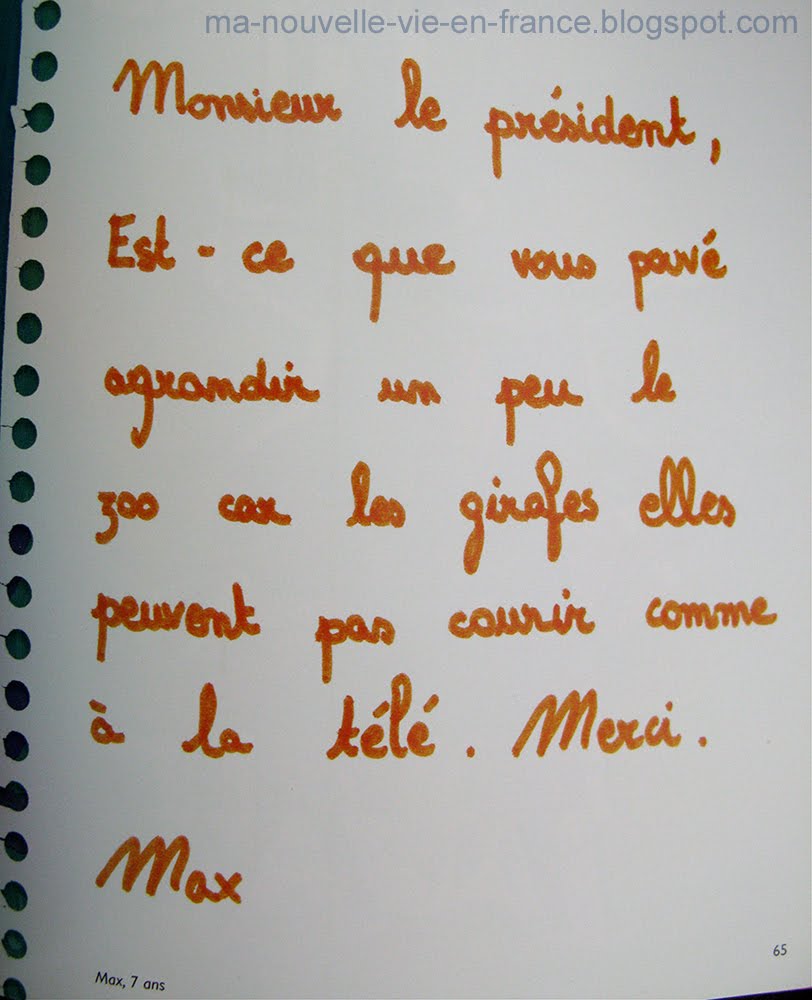 ma-nouvelle-vie-en-france.blogspot.com
Monsieur le président,
Est-ce que vous pouvé
agrandir un peu le
zoo car les girafes elles
peuvent pas courir comme
à la télé. Merci.
Max
65
Max, 7 ans